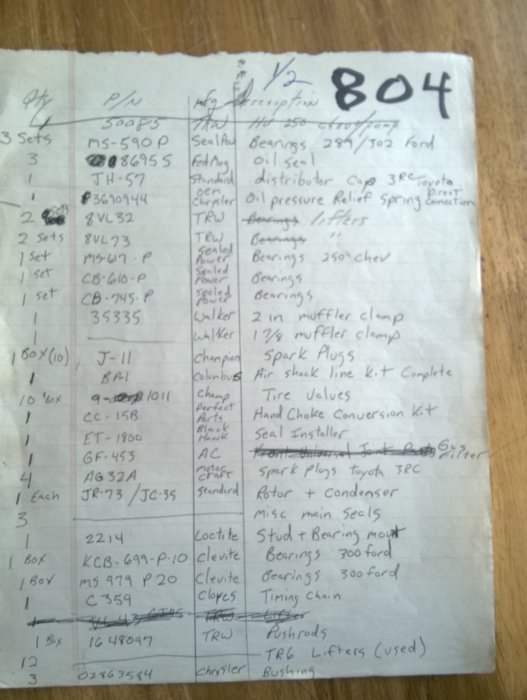 1/2 804
Qty P/N mfg Description
50085 TRW
3 Sets MS-590P Sealed Bearings 289/302 Ford
3 8695S Fed Mog Oil seal
1 JH-57 Standard distributor Cap 3RC Toyota
1 P3690944 oem Chrysler Oil pressure Relief Spring Direct Connection
2 sets 8VL32 TRW Bearings lifters
2 Sets 8VL73 TRW Bearings "
1 Set MS-617-P Sealed Power Bearings 250 chev
1 set CB-610-P Sealed Power Bearings
1 set CB-745-P Sealed Power Bearings
1 35335 Walker 2 in muffler clamp
1 Walker 1 7/8 muffler clamp
1 Box (10) J-11 Champion Spark Plugs
1 BR1 Columbus Air shock line Kit Complete
10 Box 1011 Champ Tire Valves
1 CC-15B Perfect Parts Hand Choke Conversion Kit
1 ET-1800 Black Hawk Seal Installer
1 GF-453 AC Front Universal Joint Gas filter
4 AG32A motor craft Spark plugs Toyota 3RC
1 Each JR-73/JC-35 Standard Rotor + Condenser
3 misc main seals
1 2214 Loctite Stud + Bearing mount
1 Box KCB-699-P-10 Clevite Bearings 300 ford
1 Box MS 979 P 20 Clevite Bearings 300 ford
1 C359 Cloyes Timing Chain
TRW Lifter
1 Box 1648097 TRW Pushrods
12 TR6 Lifters (used)
3 02863584 Chrysler Bushing